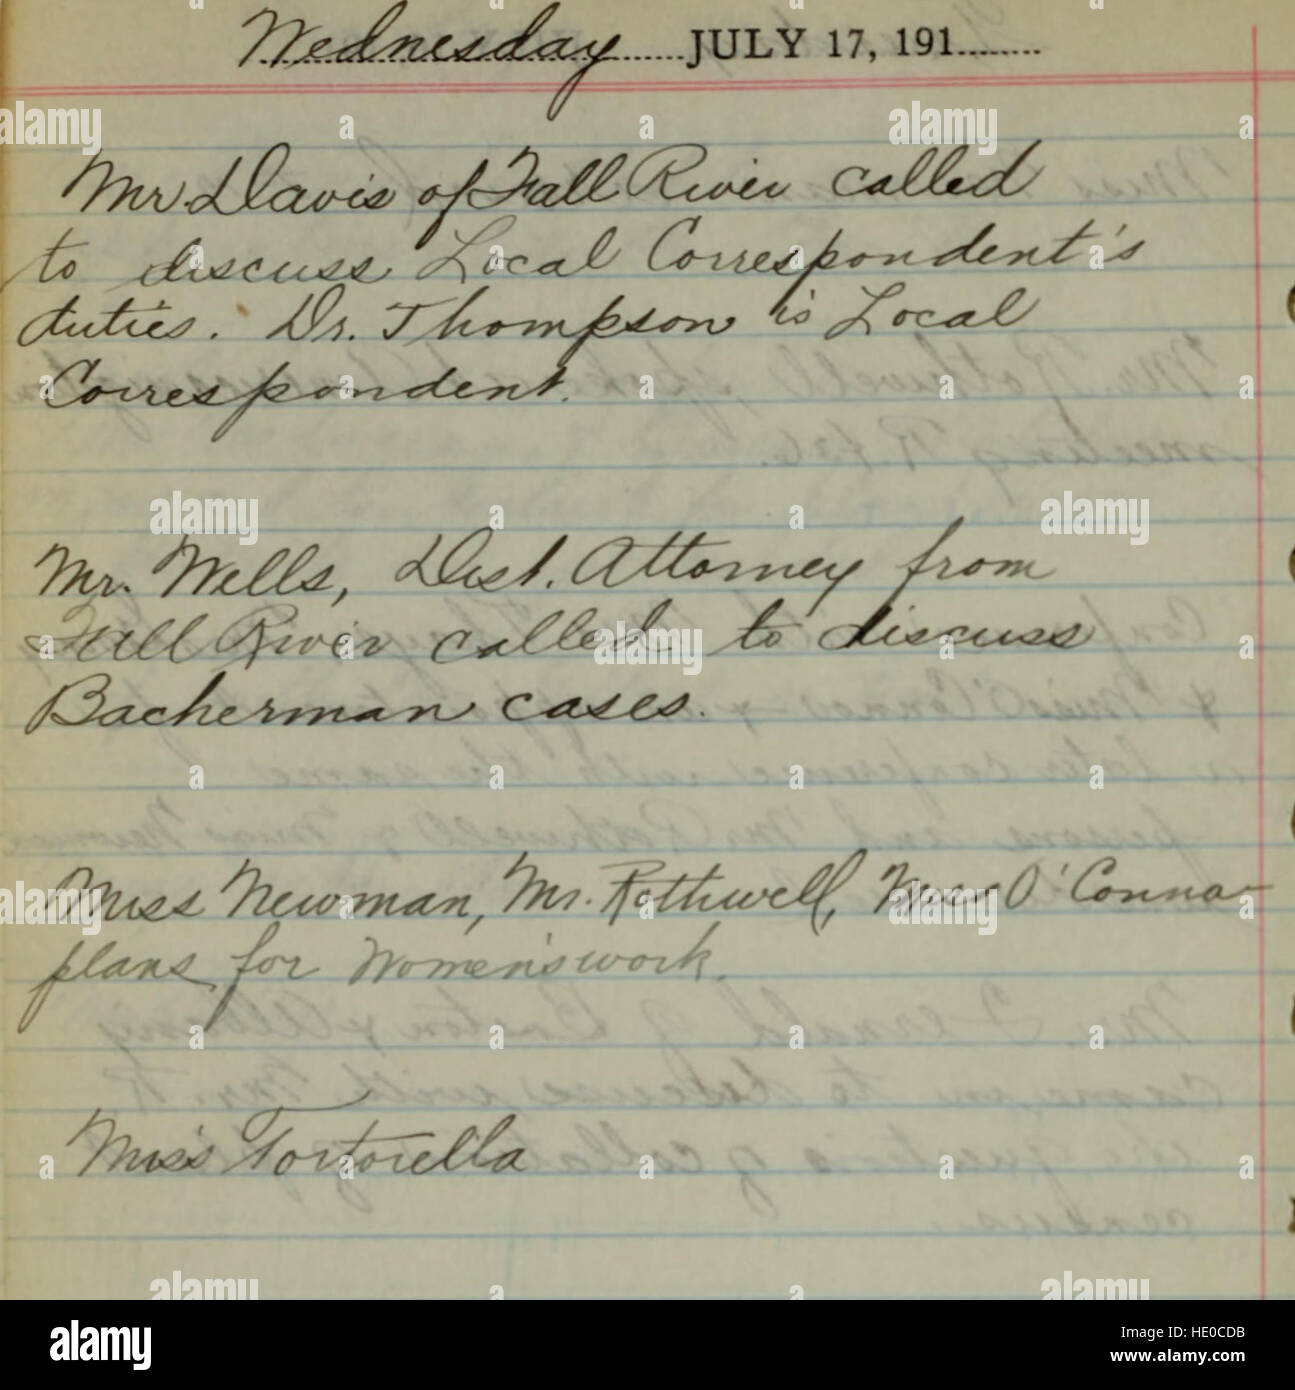 Wednesday JULY 17, 191
Mr. Davis of Fall River called
to discuss Local Correspondent's
duties. Dr. Thompson is Local
Correspondent.
Mr. Wells, Dist. Attorney from
Fall River called to discuss
Bacherman cases.
Miss Newman, Mr. Rothwell, Miss O'Connor
plans for Women's work.
Miss Tortorella
alamy
Image ID: HE0CDB
www.alamy.com